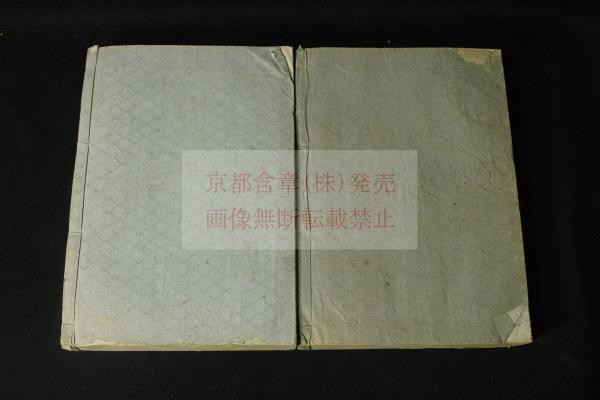 京都含章(株)発売
画像無断転載禁止